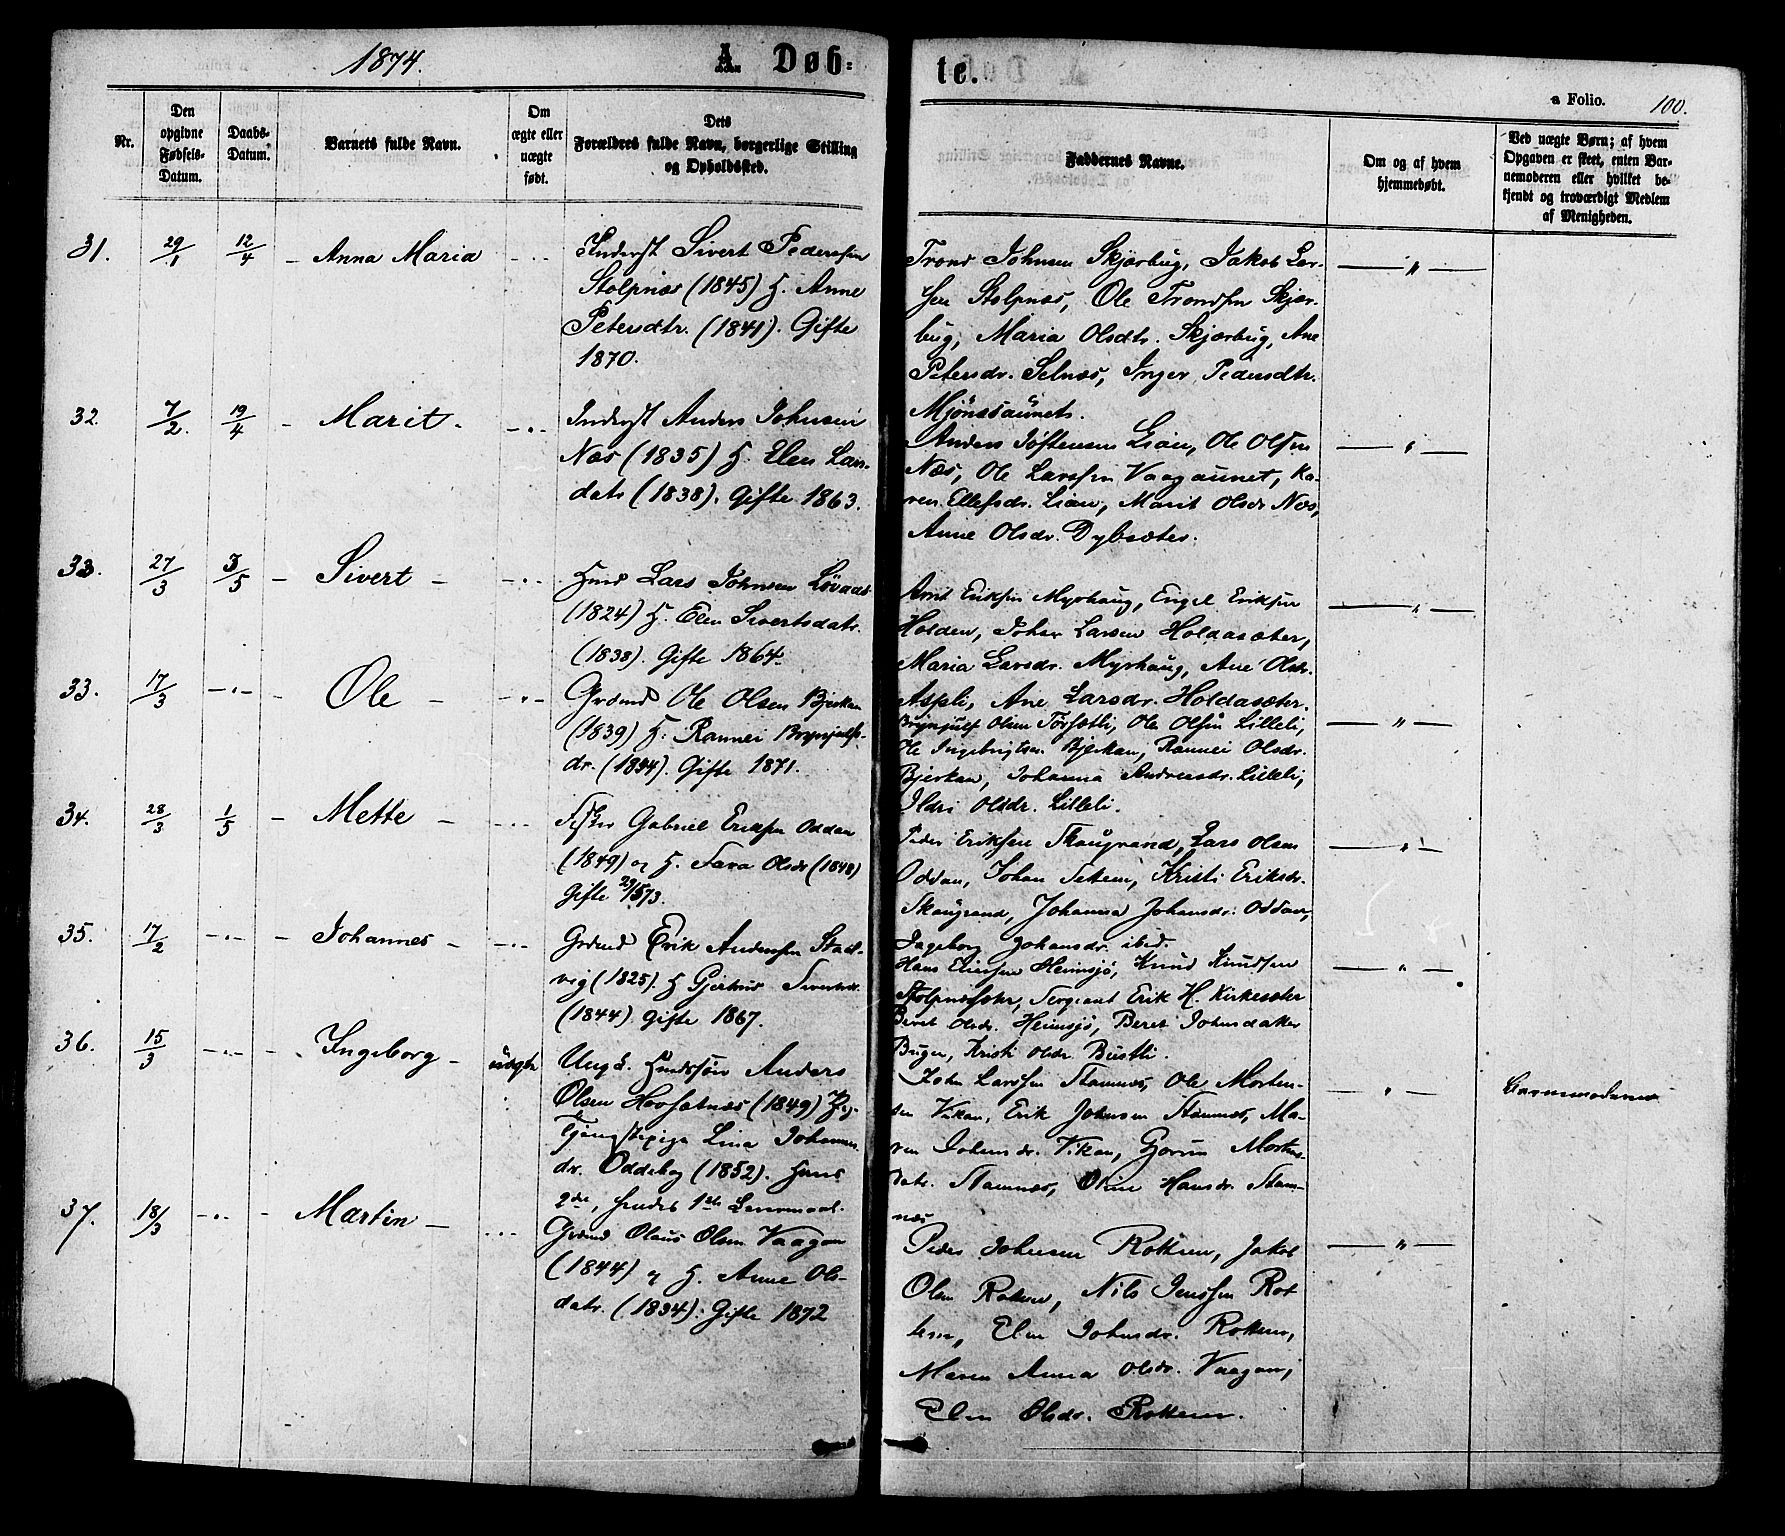 1874.
A. Døb=
te.
a Folio. 100.
Nr.
Den opgivne Fødsels-Datum.
Daabs-Datum.
Barnets fulde Navn.
Om ægte eller uægte født.
Dets Forældres fulde Navn, borgerlige Stilling og Opholdssted.
Faddernes Navne.
Om og af hvem hjemmedøbt.
Ved uægte Børn; af hvem Opgaven er skeet, enten Barnemoderen eller hvilket bekjendt og troværdigt Medlem af Menigheden.
31. 29/1 12/4 - Anna Maria - . -
Inderst Sivert Pedersen
Stolpnæs (1845) H. Anne
Petersdtr. (1841). Gifte
1870.
Trond Johnsen Skjærbug, Jakob Lar-
sen Stolpnæs, Ole Trondsen Skjær-
bug, Maria Olsdtr. Skjærbug, Ane
Petersdr. Selnæs, Inger Pedersdtr.
Mjönæsaunet.
— " —
32. 7/2. 19/4 - Marit - - . -
Inderst Anders Johnsen
Næs (1835) H. Elen Lars-
datr (1838). Gifte 1863.
Anders Jøstensen Lian, Ole Olsen
Næs, Ole Larssen Vaagaunet, Ka-
ren Ellefsdr. Lian, Marit Olsdr Næs,
Anne Olsdr. Dybsæter.
— " —
33. 27/3 3/5 - Sivert - - . -
Hmd Lars Johnsen Løvaas
(1824) H. Elen Sivertsdatr.
(1838). Gifte 1864.
Arnt Eriksen Myrhaug, Engel Eriksen
Holden, Johan Larsen Holdasæter,
Maria Larsdr. Myrhaug, Ane Olsdr.
Aspli, Ane Larsdr. Holdasæter.
— " —
33. 17/3 - . - - Ole - - . -
Grdmd Ole Olsen Bjerkan
(1839) H. Rannei Brynjulfs-
dr. (1854). Gifte 1871.
Brynjulf Olsen Torsætli, Ole Olsen Lilleli,
Ole Ingebrigtsen Bjerkan, Rannei Olsdr.
Bjerkan, Johanna Andreasdr. Lilleli,
Ildri Olsdr. Lilleli.
— " —
34. 28/3 1/5 - Mette - - . -
Fisker Gabriel Eriksen Oddan
(1849) og H. Sara Olsdr (1848)
Gifte 29/5 73.
Peder Eriksen Skaugrand, Lars Olsen
Oddan, Johan Teken, Kristi Eriksdr.
Skaugrand, Johanna Johansdr. Oddan,
Ingeborg Johansdr. ibid.
— " —
35. 17/2 - . - - Johannes - - . -
Grdmd Erik Andersen Stad-
vig (1825). H Gjertrud Sivertsdr.
(1844) gifte 1867.
Hans Eliassen Heimsjø, Knud Knudsen
Stolpnæsætr, Sergeant Erik H. Kirkesæter
Beret Olsdr. Heimsjø, Beret Johnsdatter
Bugen, Kristi Olsdr. Bustli.
— " —
36. 15/3 - . - - Ingeborg - uægte
Ungk. Husmssøn Anders
Olsen Hovsetnæs (1849) og
Tjenestepige Lina Johannes-
dr. Oddebog (1852). Hans
2de, hendes 1ste Leiermaal.
John Larssen Stamnæs, Ole Morten-
sen Vikan, Erik Johnsen Stamnæs, Ma-
ren Johnsdr. Vikan, Gjørun Mortens-
datr. Stamnæs, Oline Hansdr. Stam-
næs
— " —
Barnemoderen
37. 18/3 - . - - Martin - - . -
Grdmd Olaus Olsen Vaagan
(1844) og H. Anne Ols-
datr. (1834). Gifte 1872
Peder Johnsen Rotten, Jakob
Olsen Rotten, Nils Jenssen Rot-
ten, Elen Johnsdr. Rotten,
Maren Anna Olsdr. Vaagan,
Elen Olsdr. Rotten.
— " —